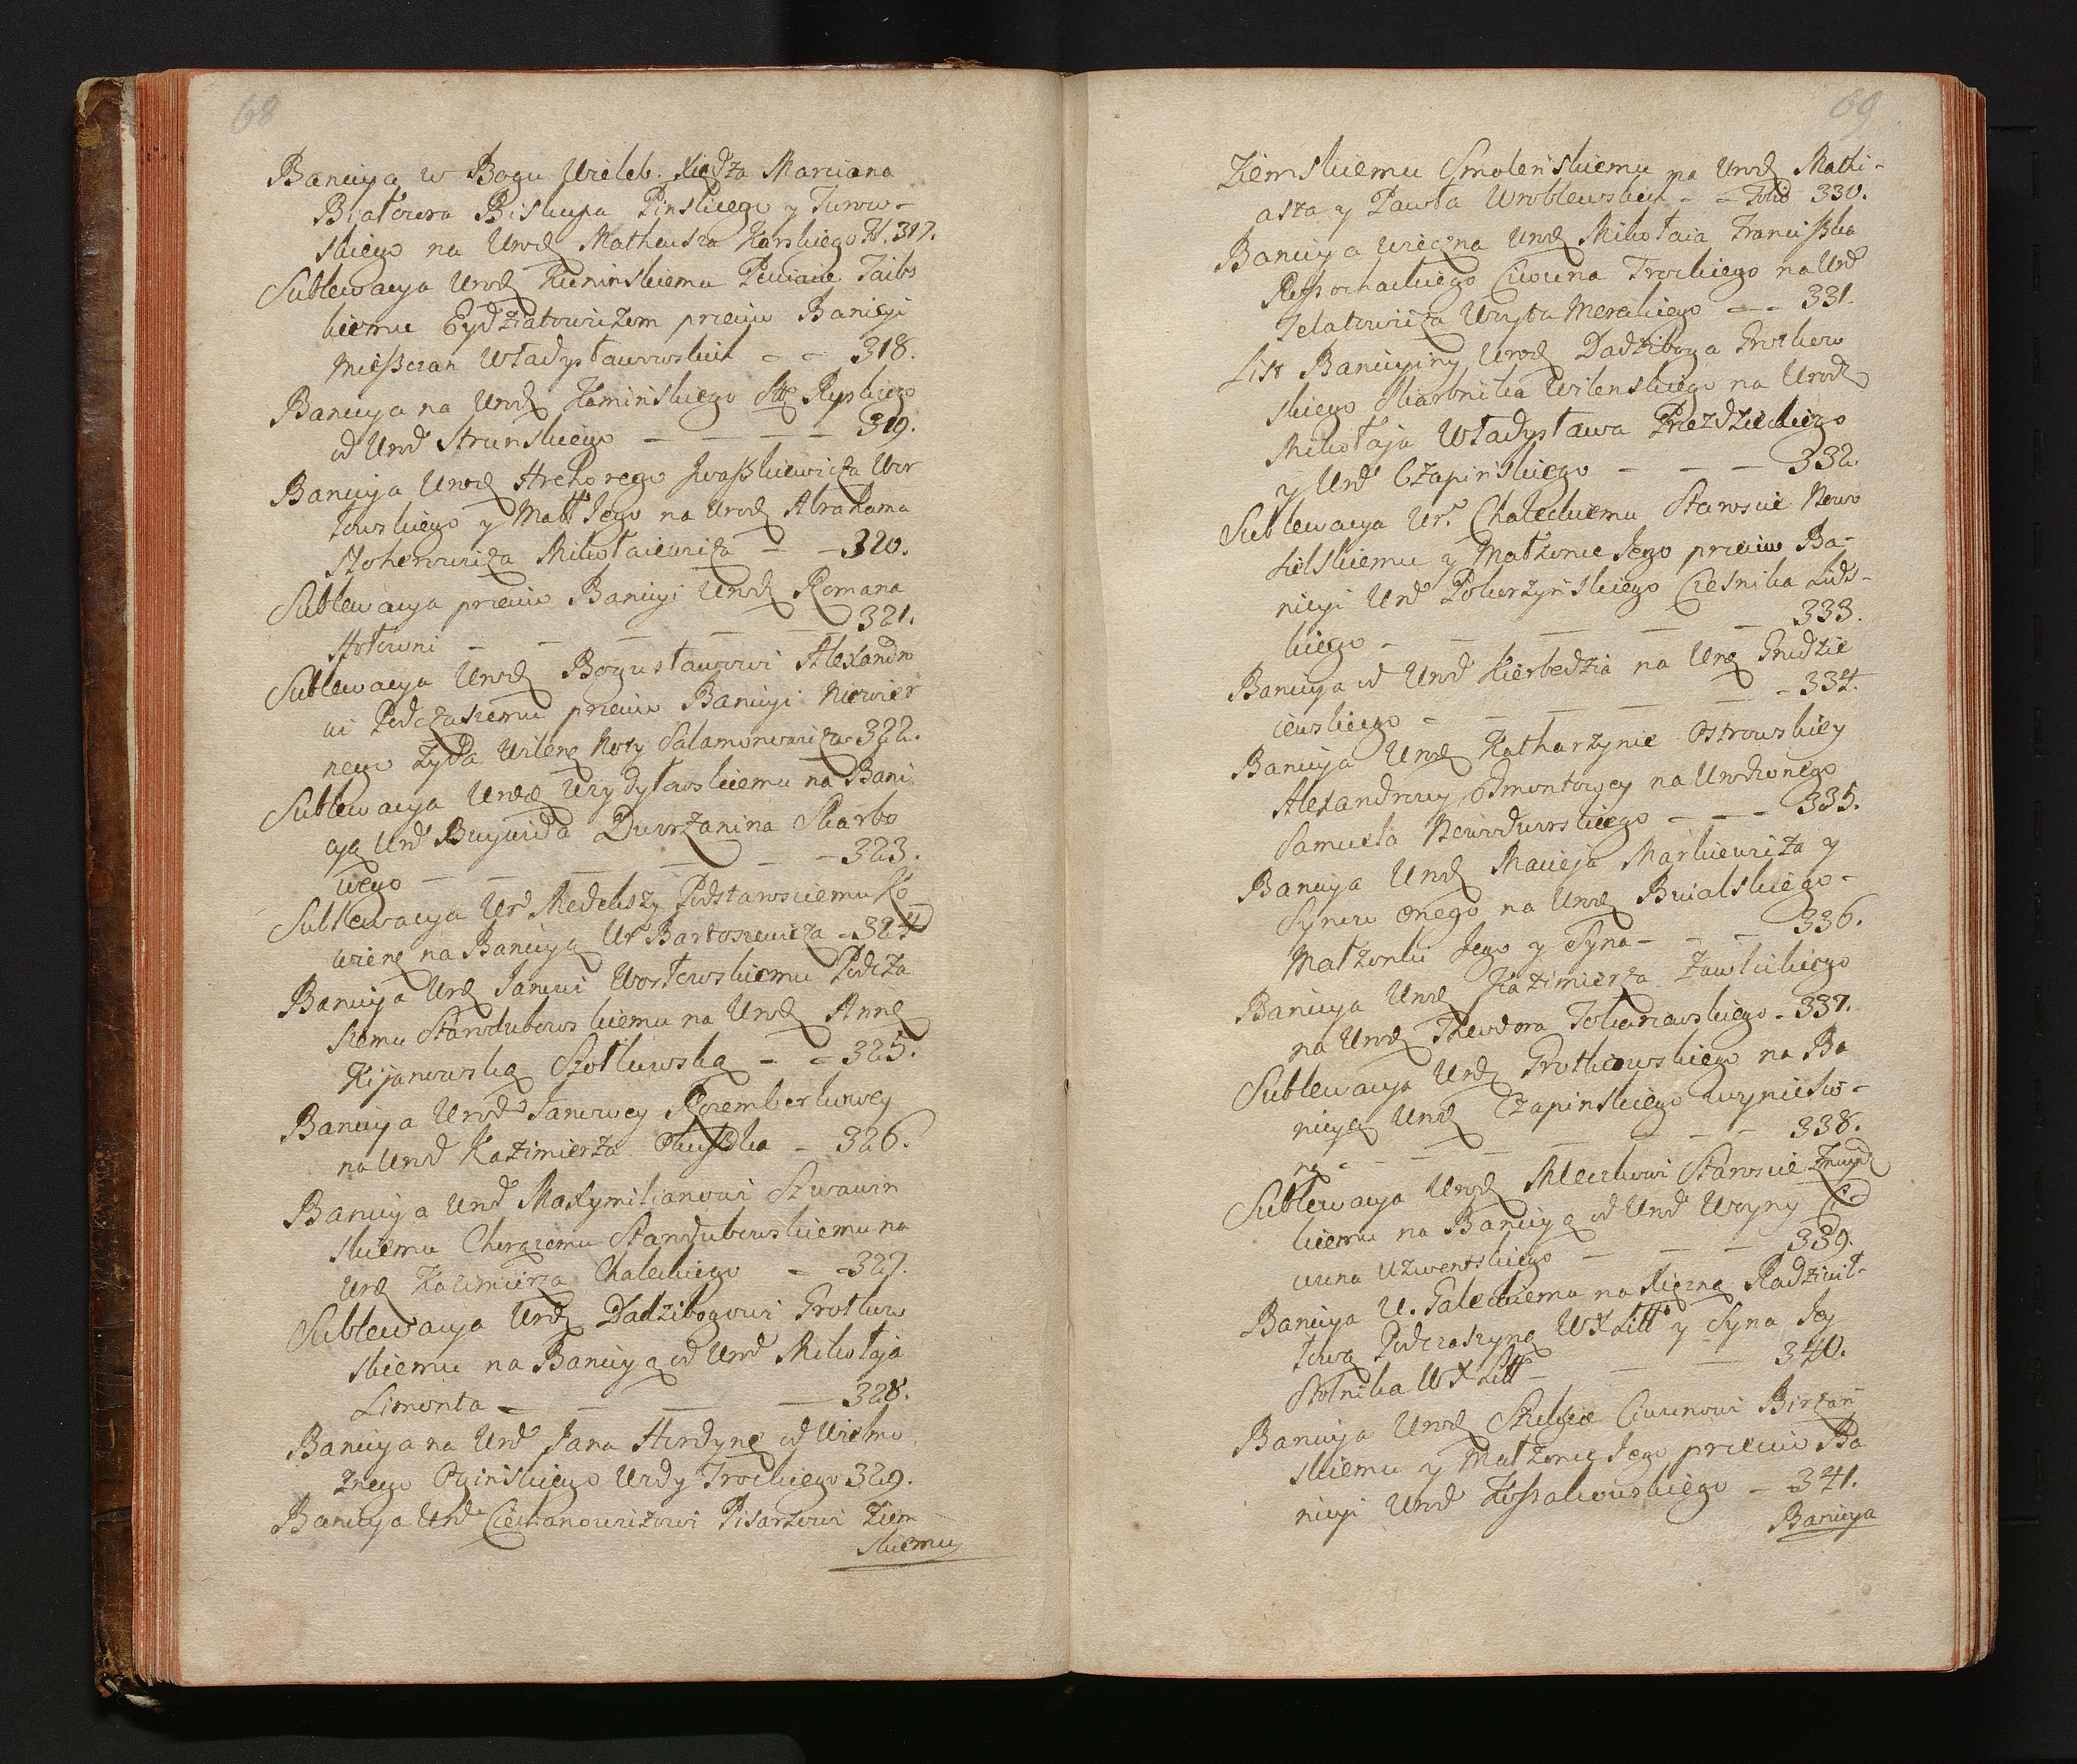 68
Banicya w Bogu Wieleb. Xiędza Marciana
Białowra Biskupa Pinskiego y Turow-
skiego na Urodz Matheusza Karskiego Fol. 317.
Sublewacya Urodz
kiemu Eydziatowiczom przeciw Banicyi
Miesczan Władysławowskich - - 318.
Banicya na Urodz Kaminskiego Rypskiego
od Urod Strunskiego - - - - 319.
Banicya Urodz Hrehorego Iwaszkiewicza Wor
łowskiego y Małż Iego na Urodz Abrahama
Mikołaiewicza - - 320.
Sublewacya przeciw Banicyi Urodz Romana
Hołowni - - - - - 321.
Sublewacya Urodz Bogusławowi Alexandro
wi Podczaszemu przeciw Banicyi Niewier
nego Żyda Wileng Noty Salamonowicza - 322.
Sublewacya Urodz na Bani
cyą Urd Buywida Dworzanina Skarbo
wego - - - - - 323.
Sublewacya Urd Medekszy Podstarosciemu Ko
wieng na Banicyą Ur Bartoszewicza - 324
Banicya Urdz Janowi Worłowskiemu Podcza
szemu Starodubowskiemu na Urodz Annę
Kijanowską Szotkowską - - 325.
Banicya Urod Janowey Rozemberkowey
na Urod Kazimierza - 326.
Banicya Urod Maxymilianowi Szwawin
skiemu Chorążemu Starodubowskiemu na
Urdz Kazimierza Chaleckiego - - 327.
Sublewacya Urdz Dadzibogowi Grotkow
skiemu na Banicyą od Urod Mikołaja
Limonta - - - - 328.
Banicya na Urod Jana Hordynę od Wielmo
żnego Oginskiego Wdy Trockiego 329.
Banicya Urd Ciechanowiczowi Pisarzowi Ziem
skiemu
69
Ziemskiemu Smolenskiemu na Urodz Mathi-
asza y Pawła Wroblewskich - - Folio 330.
Banicya wieczna Urodz Mikołaia Franciszka
Rossochackiego Ciwuna Trockiego na Urd
Jelatowicza Woyta Mereckiego - - 331.
List Banicyiny Urodz Dadziboga Grotkow
skiego Skarbnika Wilenskiego na Urodz
Mikołaja Władysława Przezdzieckiego
y Urd Czapinskiego - - - 332.
Sublewacya Ur. Chaleckiemu Staroscie Nowo
sielskiemu y Małżonce Iego przeciw Ba-
nicyi Urd Pokurzynskiego Czesnika Lidz-
kiego - - - - - 333.
Banicya od Urod Kierbedzia na Urdz Grudzie
cewskiego - - - - - 334.
Banicya Urodz Katharzynie Ostrowskiey
Alexandrowy Odmontowey na Urodzonego
Samuela Nowodworskiego - - - 335.
Banicya Urodz Macieja Markiewicza y
Synow onego na Urodz Bwialskiego-
Małżonki Jego y Syna - - - 336.
Banicya Urodz Kazimierza Zawlickiego
na Urodz Theodora Tokarzewskiego - 337.
Sublewacya Urdz Grotkowskiego na Ba
nicyą Urodz Czapinskiego wyniesio-
ną - - - - - - 338.
Sublewacya Urodz Mleczkowi Staroscie Zmuydz
kiemu na Banicyą od Urod Woyny Ci
wuna Uzwentskiego - - - 339.
Banicya U. Galeckiemu na Xiężnę Radziwił-
łową Podczaszyną WXLitt y Syna Jey
Stolnika WXLitt - - - 340.
Banicya Urodz Ciwunowi Birżań
skiemu y Małżonce Jego przeciw Ba
nicyi Urod Kossakowskiego - 341.
Banicya